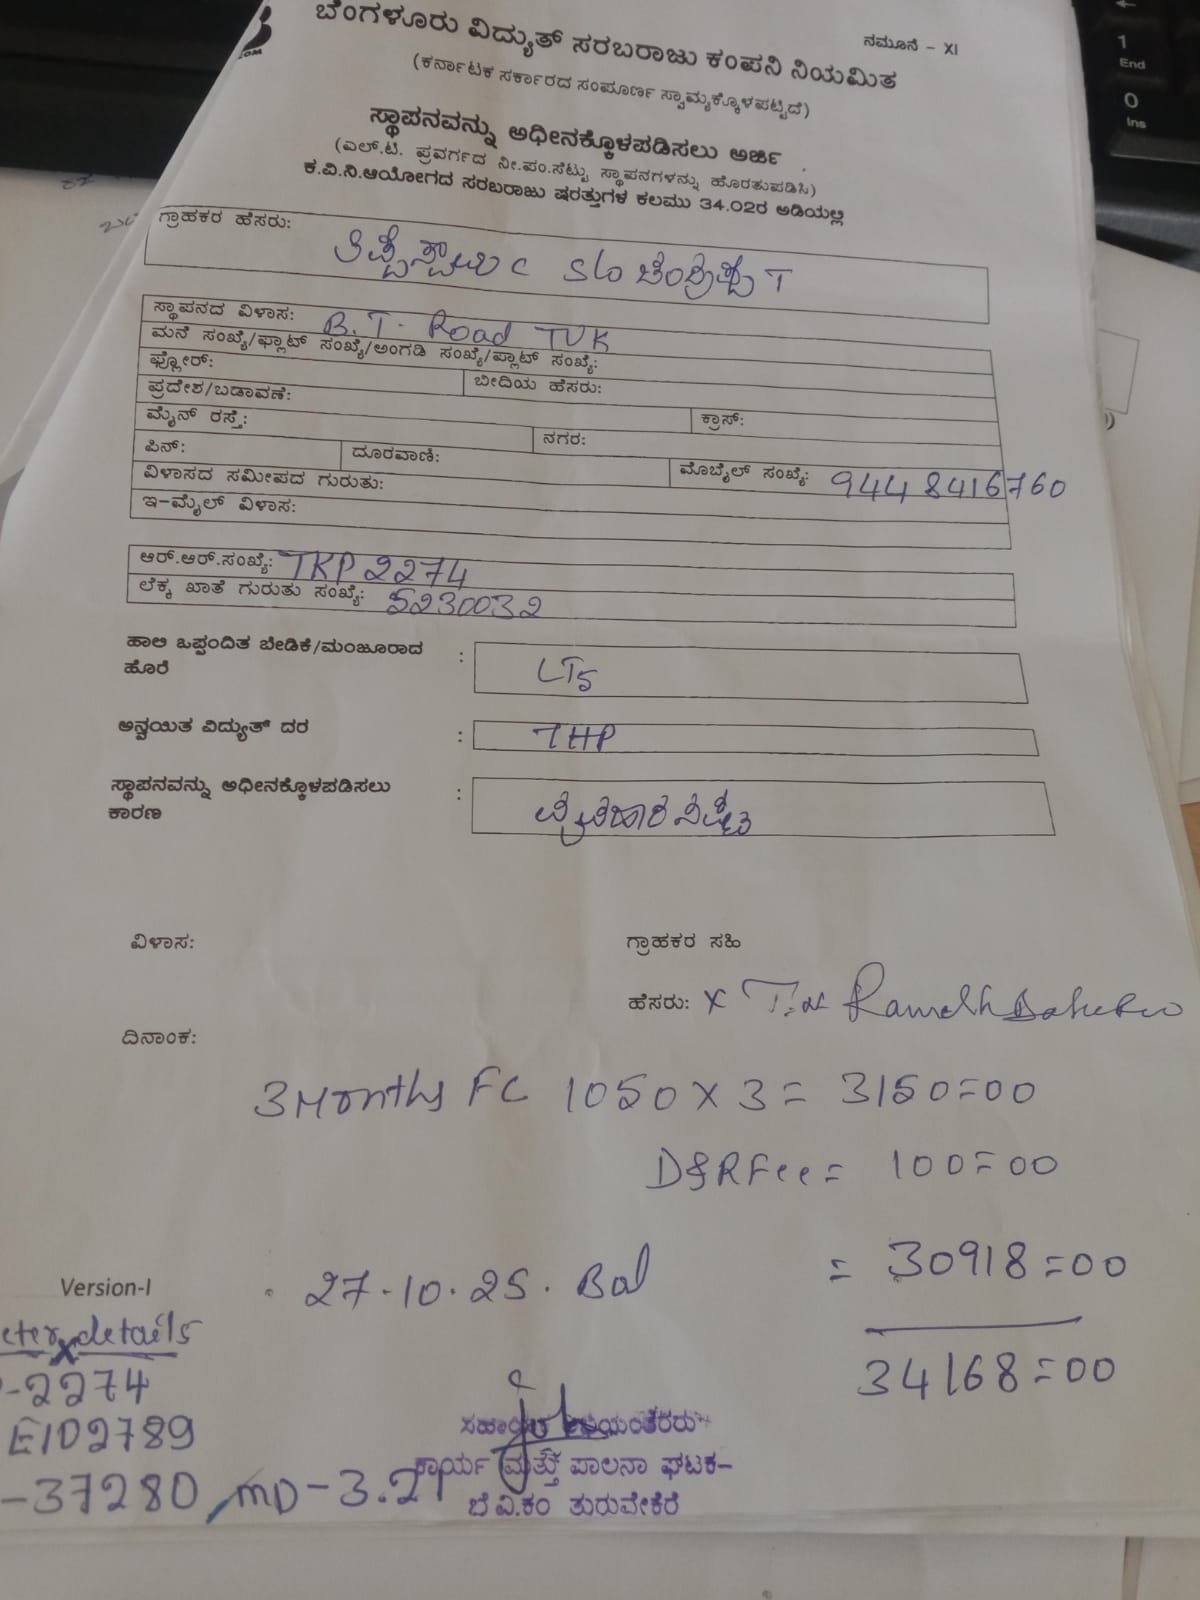 ನಮೂನೆ - XI
ಬೆಂಗಳೂರು ವಿದ್ಯುತ್ ಸರಬರಾಜು ಕಂಪನಿ ನಿಯಮಿತ
(ಕರ್ನಾಟಕ ಸರ್ಕಾರದ ಸಂಪೂರ್ಣ ಸ್ವಾಮ್ಯಕ್ಕೊಳಪಟ್ಟಿದೆ)
ಸ್ಥಾಪನವನ್ನು ಅಧೀನಕ್ಕೊಳಪಡಿಸಲು ಅರ್ಜಿ
(ಎಲ್.ಟಿ. ಪ್ರವರ್ಗದ ನೀ.ಪಂ.ಸೆಟ್ಟು ಸ್ಥಾಪನಗಳನ್ನು ಹೊರತುಪಡಿಸಿ)
ಕ.ವಿ.ನಿ.ಆಯೋಗದ ಸರಬರಾಜು ಷರತ್ತುಗಳ ಕಲಮು 34.02ರ ಅಡಿಯಲ್ಲಿ
ಗ್ರಾಹಕರ ಹೆಸರು:
S/o T
ಸ್ಥಾಪನದ ವಿಳಾಸ: B.T. Road TVK
ಮನೆ ಸಂಖ್ಯೆ/ಫ್ಲಾಟ್ ಸಂಖ್ಯೆ/ಅಂಗಡಿ ಸಂಖ್ಯೆ/ಪ್ಲಾಟ್ ಸಂಖ್ಯೆ:
ಫ್ಲೋರ್: ಬೀದಿಯ ಹೆಸರು:
ಪ್ರದೇಶ/ಬಡಾವಣೆ:
ಮೈನ್ ರಸ್ತೆ: ಕ್ರಾಸ್:
ಪಿನ್: ದೂರವಾಣಿ: ನಗರ:
ವಿಳಾಸದ ಸಮೀಪದ ಗುರುತು: ಮೊಬೈಲ್ ಸಂಖ್ಯೆ: 9448416760
ಇ-ಮೈಲ್ ವಿಳಾಸ:
ಆರ್.ಆರ್.ಸಂಖ್ಯೆ: TKP 2274
ಲೆಕ್ಕ ಖಾತೆ ಗುರುತು ಸಂಖ್ಯೆ: 5230032
ಹಾಲಿ ಒಪ್ಪಂದಿತ ಬೇಡಿಕೆ/ಮಂಜೂರಾದ
ಹೊರೆ : LT5
ಅನ್ವಯಿತ ವಿದ್ಯುತ್ ದರ : 7HP
ಸ್ಥಾಪನವನ್ನು ಅಧೀನಕ್ಕೊಳಪಡಿಸಲು :
ಕಾರಣ
ವಿಳಾಸ: ಗ್ರಾಹಕರ ಸಹಿ
ಹೆಸರು: x
ದಿನಾಂಕ:
3 Months FC 1050 x 3 = 3150=00
D&R Fee = 100=00
27.10.25. Bal = 30918=00
34168=00
Version-I
eter details
-2274
E102789
-37280, MD-3.21
ಸಹಾಯಕ ಅಭಿಯಂತರರು
ಕಾರ್ಯ ಮತ್ತು ಪಾಲನಾ ಘಟಕ-
ಬೆ.ವಿ.ಕಂ ತುರುವೇಕೆರೆ
1
End
0
Ins